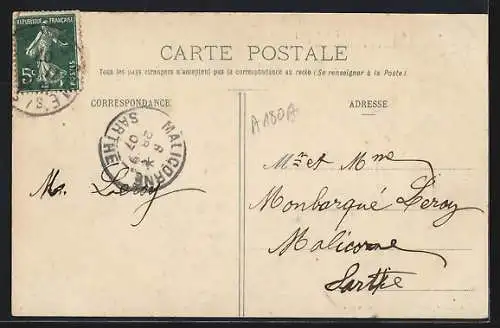 RÉPUBLIQUE FRANÇAISE
5c
POSTES
CARTE POSTALE
Tous les pays étrangers n'acceptent pas la correspondance au recto (Se renseigner à la Poste)
CORRESPONDANCE
ADRESSE
A180A
MALICORNE
SARTHE
07
Mr et Mme
M. Leroy
Monbarqué Leroy
Malicorne
Sarthe